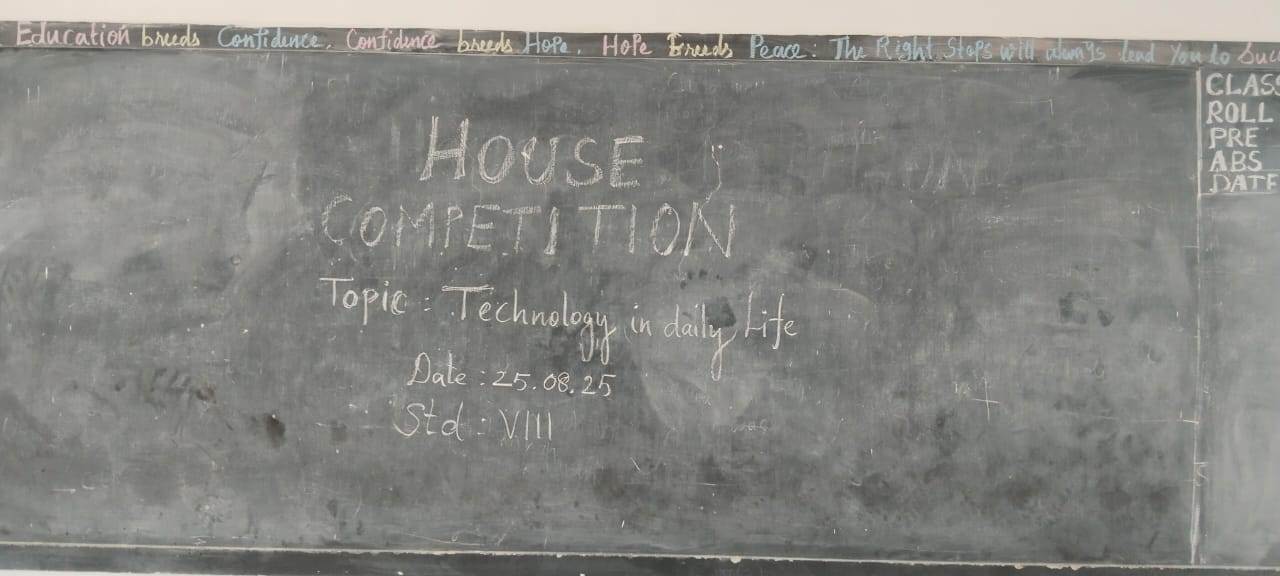 Education breeds Confidence. Confidence breeds Hope. Hope Breeds Peace: The Right Steps will always lead You to
HOUSE
COMPETITION
Topic : Technology in daily Life
Date : 25.08.25
Std : VIII
CLASS
ROLL
PRE
ABS
DATE